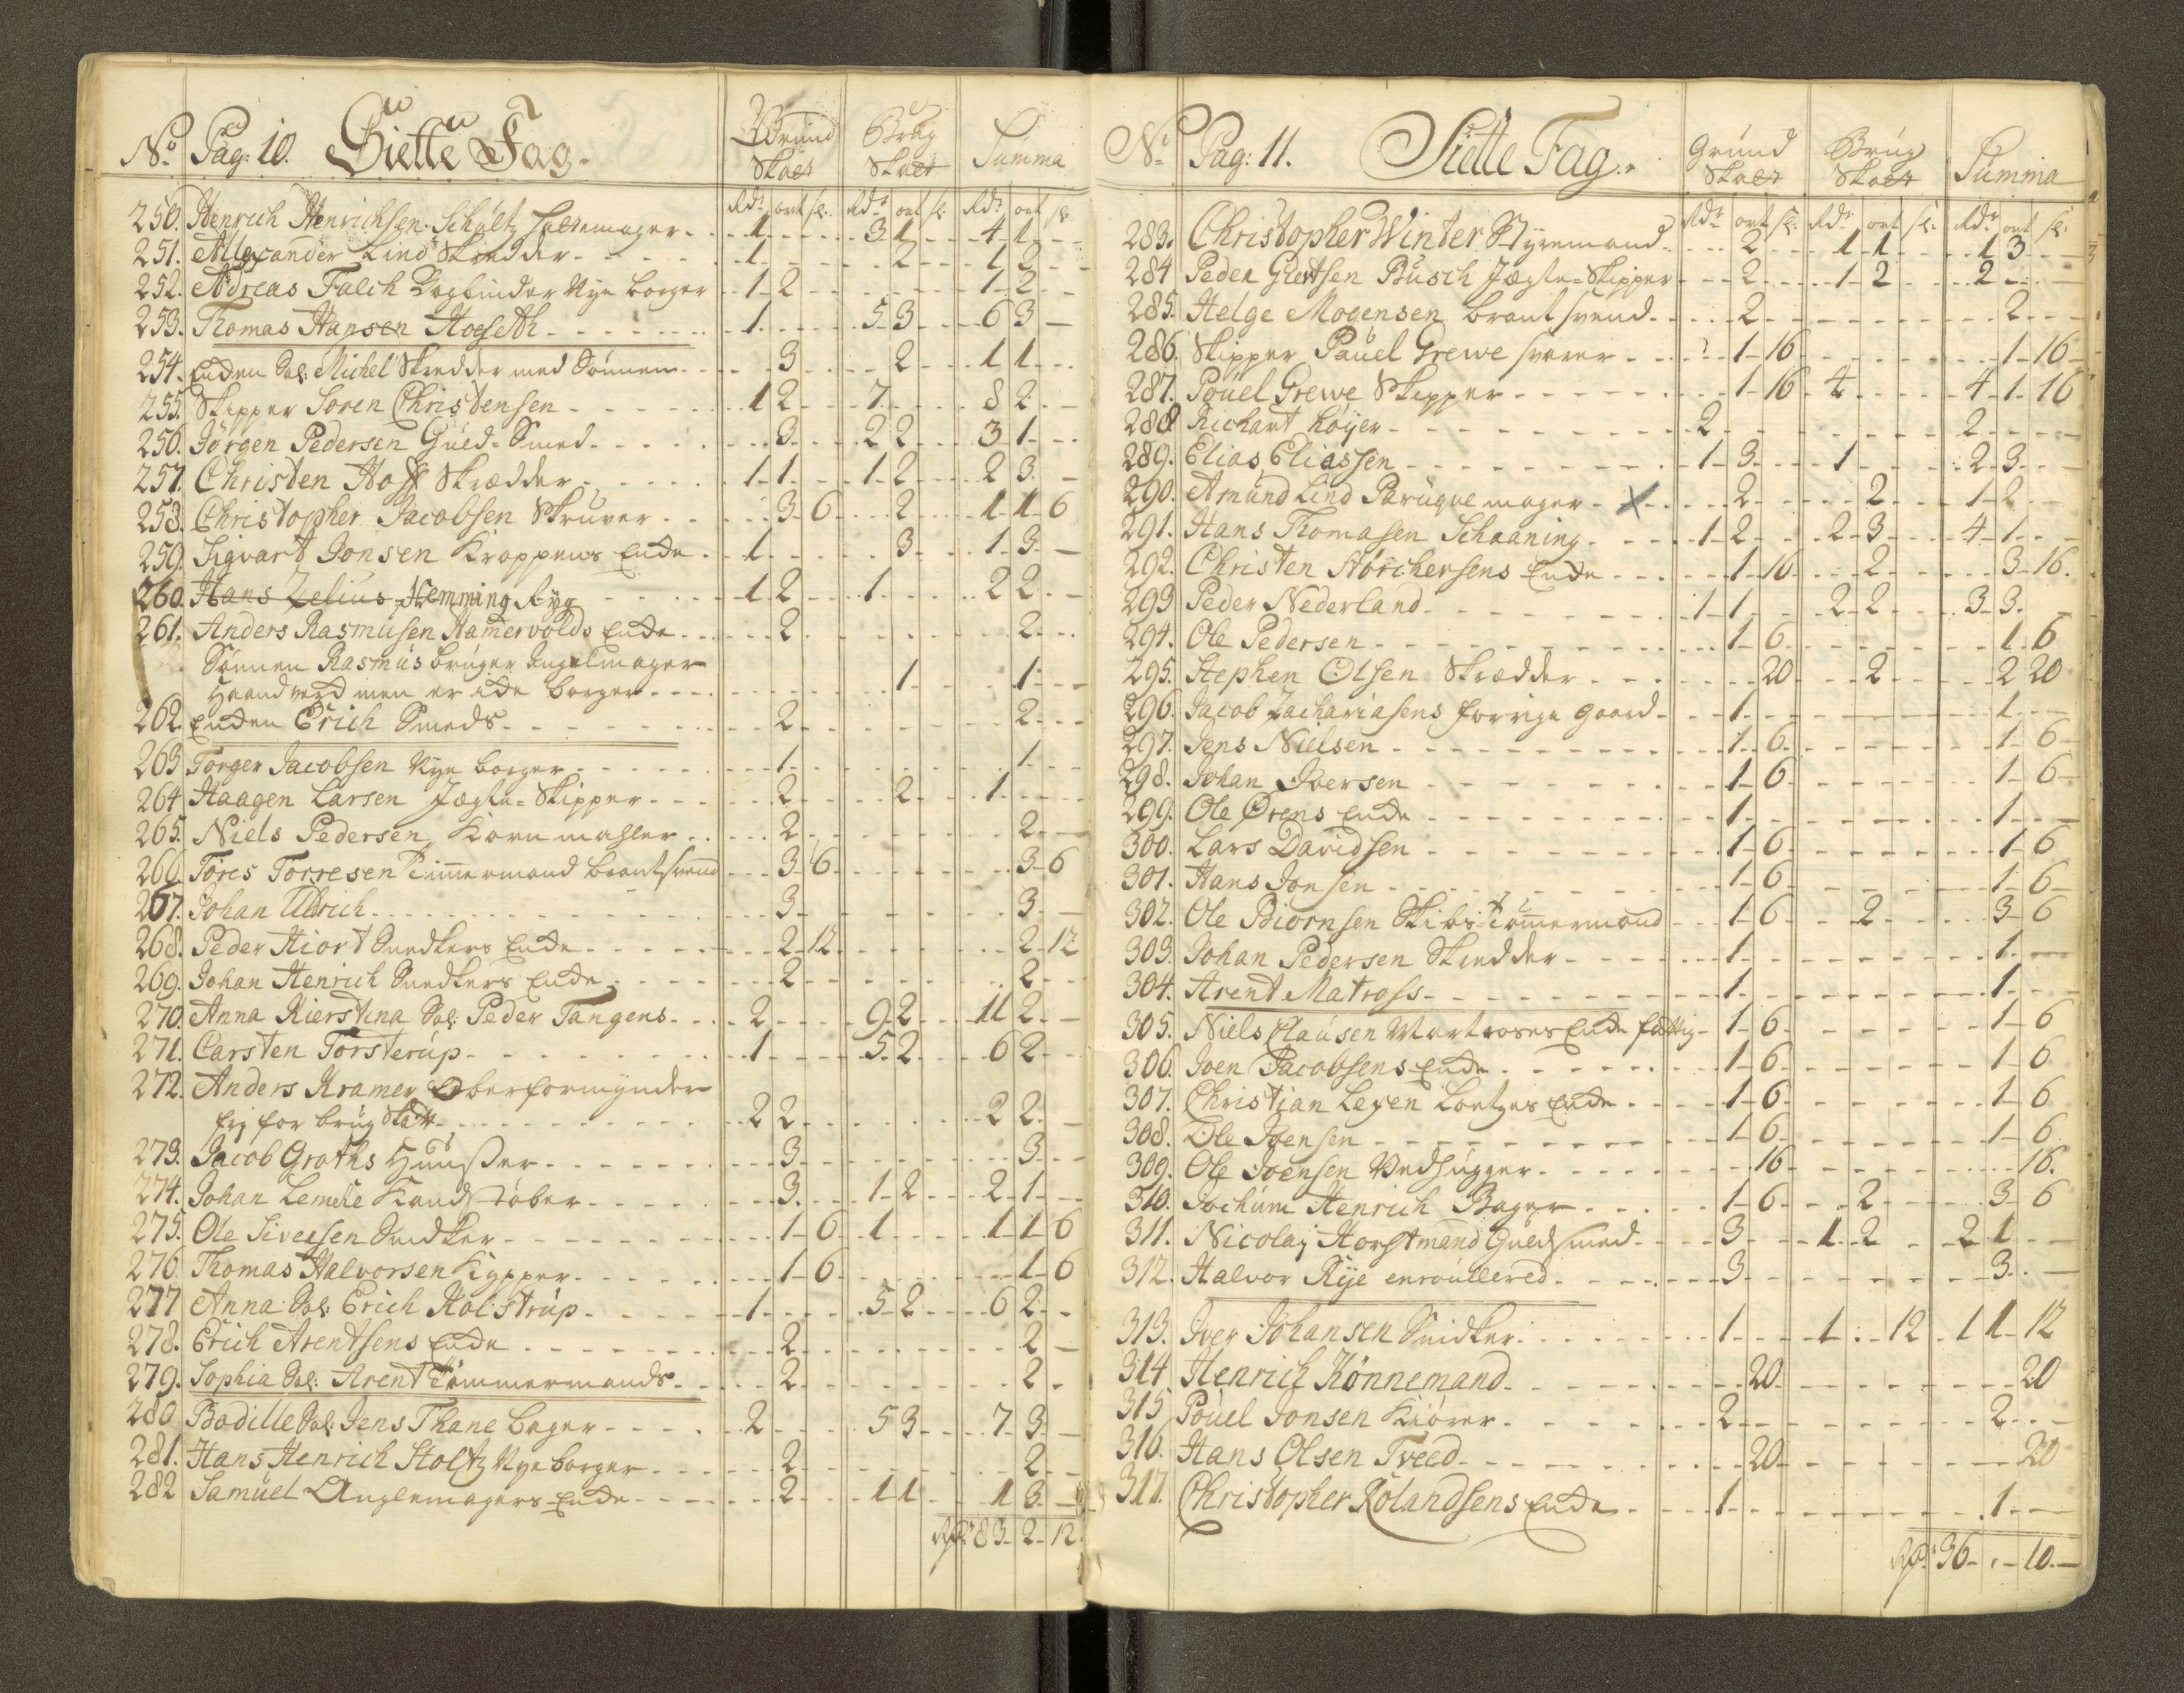 No Pag: 10. Siette Fag. Grund Skatt Brug Skatt Summa
Rdr ort sl. Rdr ort sl. Rdr ort sl.
250. Henrich Henrichsen Schultz Hattemager 1 3 1 4 1
251. Allexander Lind Skredder 1 2 1 2
252. Adreas Falch Bogbinder Nye borger 1 2 1 2
253. Thomas Hansen Hoeseth 1 5 3 6 3
254. Enden Sal: Michel Skredder med Sönnen 3 2 1 1
255. Skipper Soren Christensen 1 2 7 8 2
256. Jörgen Pedersen Guld-Smed 3 2 2 3 1
257. Christen Hoff Skrædder 1 1 1 2 2 3
258. Christopher Jacobsen Skruver 3 6 2 1 1 6
259. Sigvard Jonsen Kroppens Encke 1 3 1 3
260. Hans Zelius Hemming Ryg 1 2 1 2 2
261. Anders Rasmusen Hamervolds Encke 2 2
Sönnen Rasmus bruger
Haandverck men er icke borger 1 1
262. Encken Erich Smeds 2 2
263 Torger Jacobsen Nye borger 1 1
264 Haagen Larsen Jægte-Skipper 2 2 1
265. Niels Pedersen Kornmahler 2 2
266. Töres Torresen Timmermand brantsvend 3 6 3 6
267. Johan Uldrich 3 3
268. Peder Hiort Snedkers Encke 2 12 2 12
269. Johan Henrich Snedkers Encke 2 2
270. Anna Kierstina Sal: Peder Tangens 2 9 2 11 2
271. Carsten Torsterup 1 5 2 6 2
272. Anders Kramer Oberformynder
fri for brug Skatt 2 2 2 2
273. Jacob Groths Huuser 3 3
274. Johan Lemche Kandstöber 3 1 2 2 1
275. Ole Siversen Snidker 1 6 1 1 1 6
276. Thomas Halvorsen Kypper 1 6 1 6
277 Anna Sal: Erich Holstrup 1 5 2 6 2
278. Erich Arentsens Encke 2 2
279. Sophia Sal: Arent Tömmermands 2 2
280 Bodille Sal: Jens Thane bager 2 5 3 7 3
281. Hans Henrich Stoltz Nye borger 2 2
282 Samuel Anglemagers Encke 2 1 1 1 3
Rdr 83 2 12
No Pag: 11. Siette Fag. Grund Skatt Brug Skatt Summa
Rdr ort sl. Rdr ort sl. Rdr ort sl.
283. Christopher Winter Styremand 2 1 1 1 3
284 Peder Giertsen Busch Jægte-Skipper 2 1 2 2
285. Helge Mogensen brantsvend 2 2
286. Skipper Pauel Grewe svarer 1 16 1 16
287. Pouel Grewe Skipper 1 16 4 4 1 16
288 Richart Höyer 2 2
289. Elias Eliassen 1 3 1 2 3
290. Amund Lind Paruquemager 2 2 1 2
291. Hans Thomasen Schaaning 1 2 2 3 4 1
292. Christen Störchersens Encke 1 16 2 3 16
293 Peder Nederland 1 1 2 2 3 3
294. Ole Pedersen 1 6 1 6
295. Stephen Olsen Skrædder 20 2 2 20
296. Jacob Zachariasens forrige gaard 1 1
297. Jens Nielsen 1 6 1 6
298. Johan Iversen 1 6 1 6
299. Ole Ørens Encke 1 1
300. Lars Davidsen 1 6 1 6
301. Hans Jonsen 1 6 1 6
302. Ole Biornsen Skibs-Tömmermand 1 6 2 3 6
303. Johan Pedersen Skredder 1 1
304. Arent Matross 1 1
305. Niels Clausen Martroses Encke fattig 1 6 1 6
306. Iven Jacobsens Encke 1 6 1 6
307. Christian Leyen Loetzes Encke 1 6 1 6
308. Ole Ivensen 1 6 1 6
309. Ole Ivensen Vedhugger 16 16
310. Jochum Henrich Bager 1 6 2 3 6
311. Nicolaj Horstmand Guldsmed 3 1 2 2 1
312. Halvor Rye enroullered 3 3
313. Iver Johansen Snidker 1 1 12 1 1 12
314 Henrich Könnemand 20 20
315 Pouel Jonsen Kiörer 2 2
316. Hans Olsen Tveed 20 20
317. Christopher Rolandsens Encke 1 1
Rdr 36 10